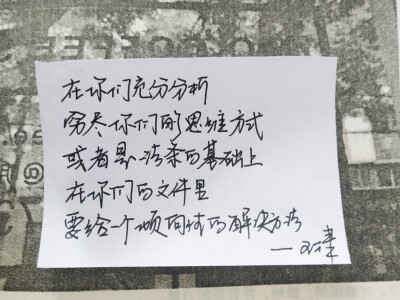 在你们充分分析
穷尽你们的思维方式
或者 的基础上
在你们的文件里
要给一个倾向性的解决方法